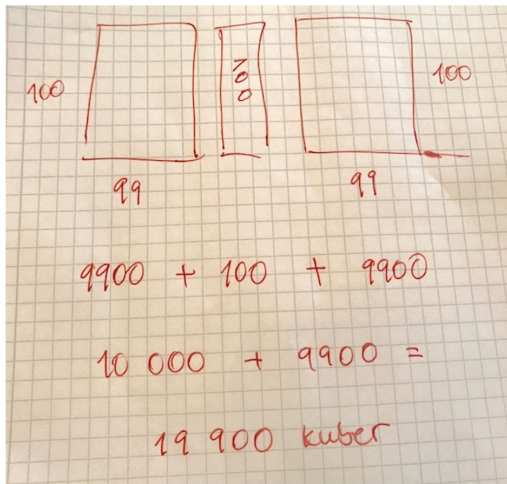 100
100
100
99
99
9900 + 100 + 9900
10 000 + 9900 =
19 900 kuber